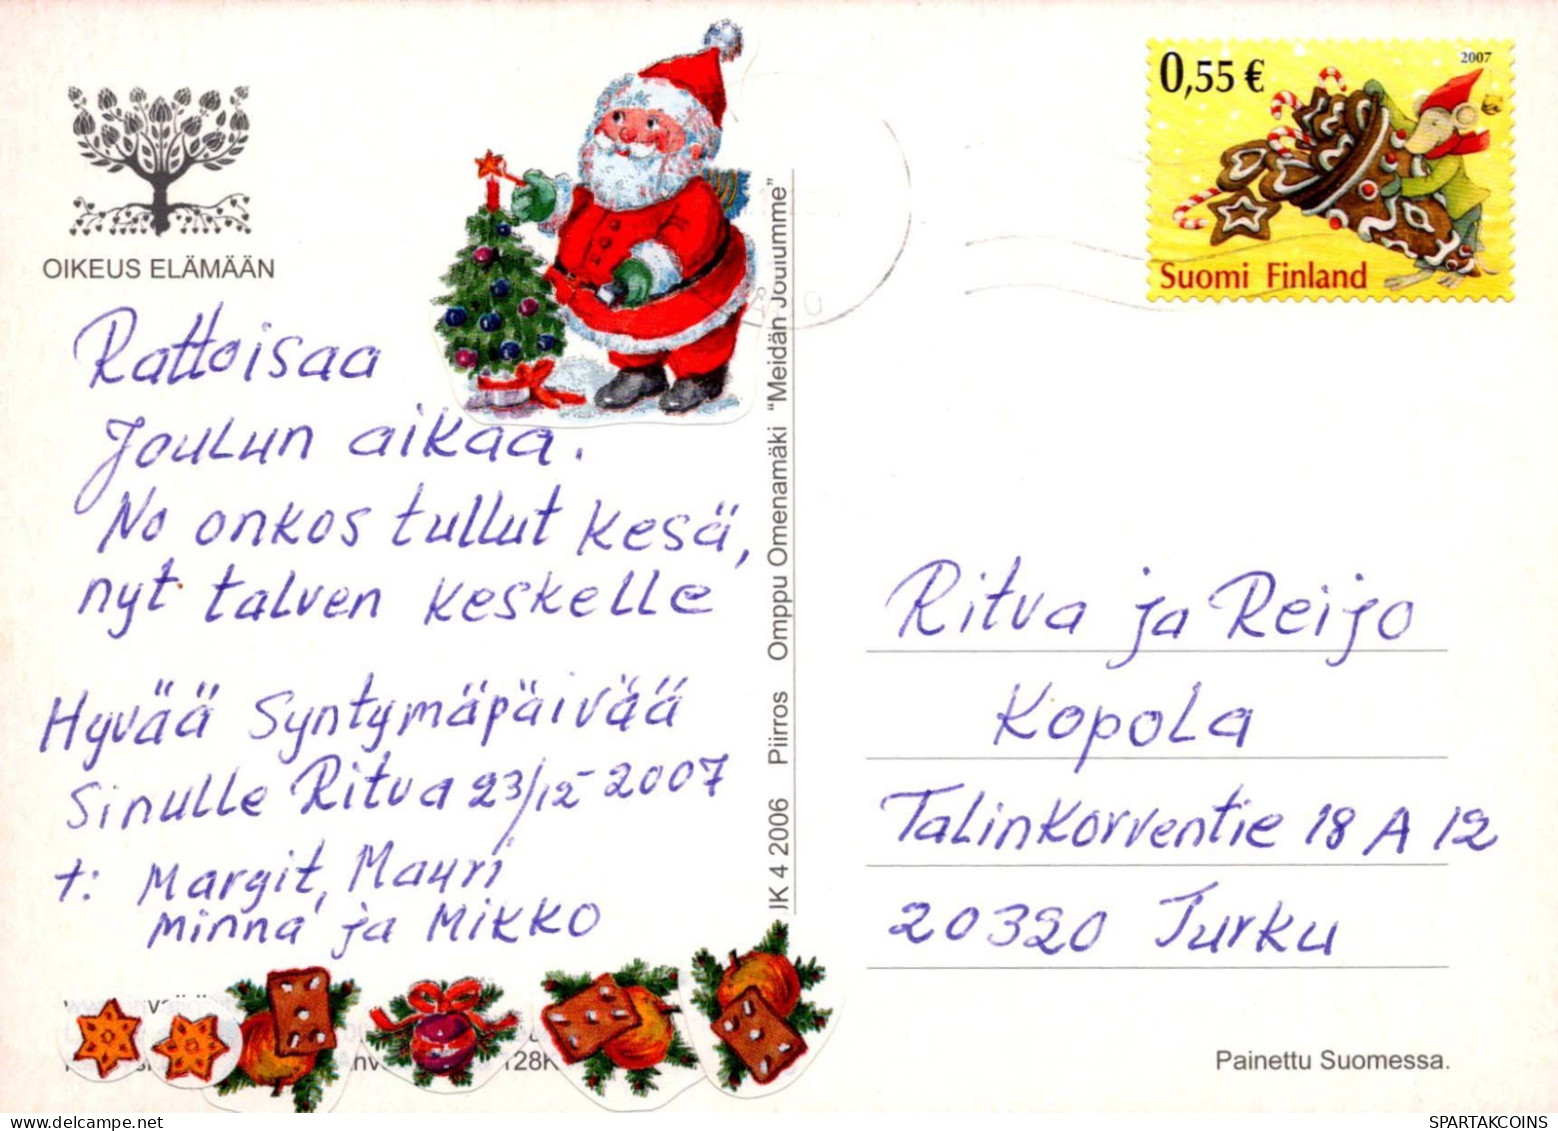 0,55 €
2007
Suomi Finland
OIKEUS ELÄMÄÄN
Rattoisaa
Joulun aikaa.
No onkos tullut kesä,
nyt talven keskelle
Hyvää Syntymäpäivää
Sinulle Ritva 23/12-2007
t: Margit, Mauri
Minna ja Mikko
JK 4 2006 Piirros Omppu Omenamäki "Meidän Joulumme"
Ritva ja Reijo
Kopola
Talinkorventie 18 A 12
20320 Turku
Painettu Suomessa.
SPARTAKCOINS